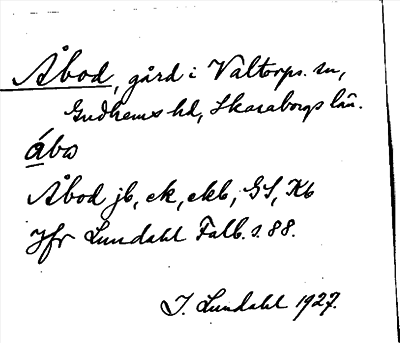 Åbod, gård i Valtorps sn,
Gudhems hd, Skaraborgs län.
ábω
Åbod jb, ek, ekb, GS, Kb
Jfr Lundahl Falb. s. 88.
I. Lundahl 1927.